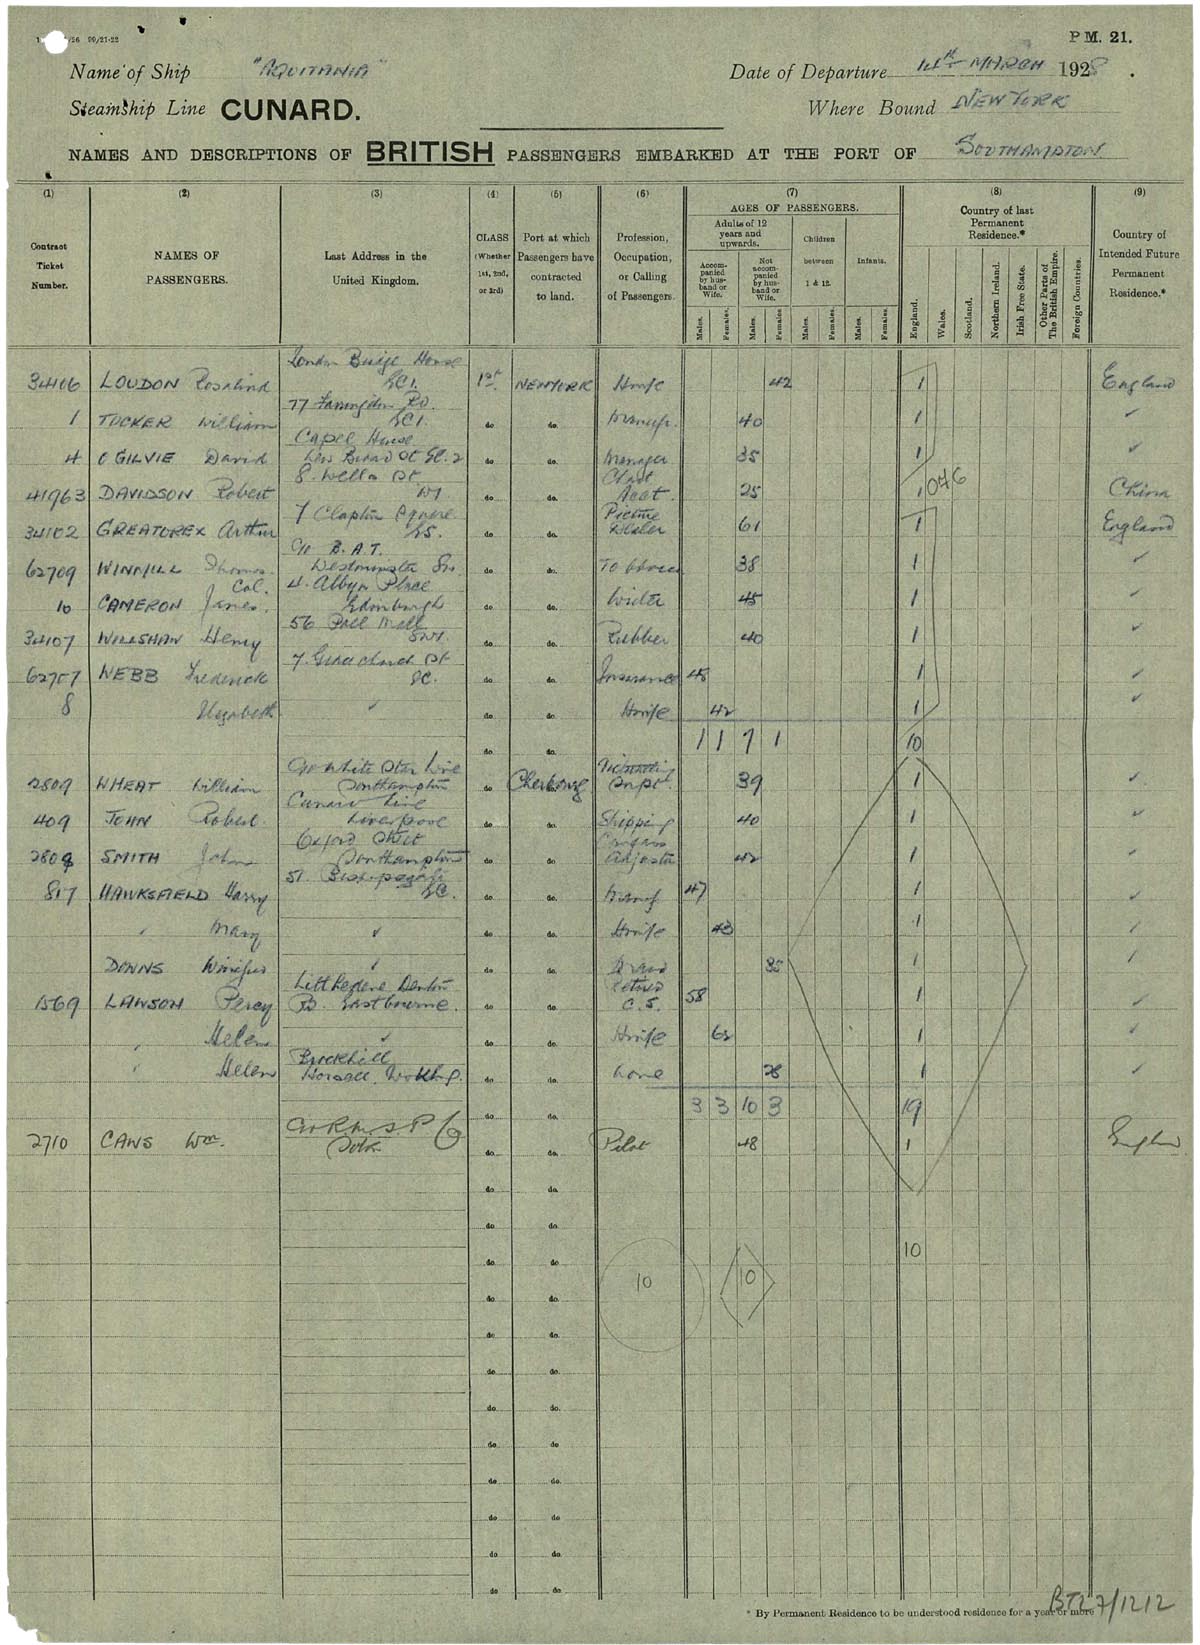 P M. 21.
Name of Ship "AQUITANIA" Date of Departure 14th MARCH 1928.
Steamship Line CUNARD. Where Bound NEW YORK
NAMES AND DESCRIPTIONS OF BRITISH PASSENGERS EMBARKED AT THE PORT OF SOUTHAMPTON
(1) (2) (3) (4) (5) (6) (7) (8) (9)
Contract Ticket Number.
NAMES OF PASSENGERS.
Last Address in the United Kingdom.
CLASS (Whether 1st, 2nd, or 3rd)
Port at which Passengers have contracted to land.
Profession, Occupation, or Calling of Passengers.
AGES OF PASSENGERS.
Adults of 12 years and upwards.
Accompanied by husband or Wife.
Not accompanied by husband or Wife.
Children between 1 & 12.
Infants.
Males. Females. Males. Females. Males. Females. Males. Females.
Country of last Permanent Residence.*
England. Wales. Scotland. Northern Ireland. Irish Free State. Other Parts of The British Empire. Foreign Countries.
Country of Intended Future Permanent Residence.*
London Bridge House
34106 LOUDON Rosalind EC1. 1st. NEWYORK H wife 42 1 England
77 Farringdon Rd.
1 TUCKER William EC1. do do. Manufr. 40 1 ✓
Capel House
4 OGILVIE David New Broad St EC.2 do do. Manager 35 1 ✓
8. Wells St Chart
41963 DAVIDSON Robert W1 do do. Acct. 25 1 046 China
7 Clapton Square Picture
34102 GREATOREX Arthur E5. do do. Dealer 61 1 England
C/o B.A.T.
62709 WINMILL Thomas. Westminster Ho. do do. Tobacco 38 1 ✓
Col. 4. Albyn Place
10 CAMERON James. Edinburgh do do. Writer 45 1 ✓
56 Pall Mall
34107 WILLSHAW Henry SW1. do do. Rubber 40 1 ✓
7. Gracechurch St
62757 WEBB Frederick EC. do do. Insurance 48 1 ✓
8 Elizabeth ✓ do do. H wife 42 1 ✓
do do. 1 1 7 1 10
C/o White Star Line
2809 WHEAT William Southampton do Cherbourg Supt. 39 1 ✓
Cunard Line
409 JOHN Robert. Liverpool do do. Shipping 40 1 ✓
Oxford Street
2809 SMITH John Southampton do do. Adjuster 42 1 ✓
51. Bishopsgate
817 HAWKSFIELD Harry EC. do do. Manuf 47 1 ✓
" Mary ✓ do do. H wife 43 1 ✓
DOWNS Winifred ✓ do do. 35 1 ✓
Denton Retired
1569 LAWSON Percy Rd. Eastbourne. do do. C.S. 58 1 ✓
" Helen ✓ do do. H wife 62 1 ✓
Brockhill
" Helen Horsell. Woking. do do. None 28 1 ✓
do do. 3 3 10 3 19
C/o R.M.S.P Co
2710 CAWS Wm. Soton do do. Pilot 48 1 England
do do.
do do.
10
do do. 10 10
do do.
do do.
do do.
do do.
do do.
do do.
do do.
do do.
do do.
* By Permanent Residence to be understood residence for a year or more
BT27/1212